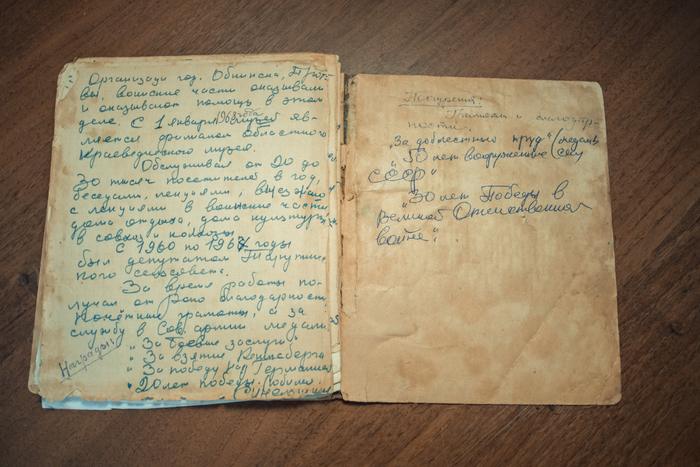 Организаци гор. Обнинска, Прот-
вы, воинские части оказывали
и оказывают помощь в этом
деле. С 1 января 1963 года музей яв-
ляется филиалом областного
краеведческого музея.
Обслуживал от 20 до
30 тысяч посетителей в год,
беседами, лекциями, выезжаю
с лекциями в воинские части
дома отдыха, дома культуры
в совхоз и колхозы
С 1960 по 1967 годы
был депутатом Тарутин-
ского сельсовет.
За время работы по-
лучал от Роно благодарност
почётные грамоты, и за
службу в Сов. армии медали
Награды:
"За боевые заслуги"
"За взятие Кенигсберга
"За победу над Германией
"20 лет победы.
грамоты и
ности.
"За доблестный труд" (медаль)
"50 лет вооружённые силы
СССР"
"30 лет Победы в
Великой Отечественной
войне".